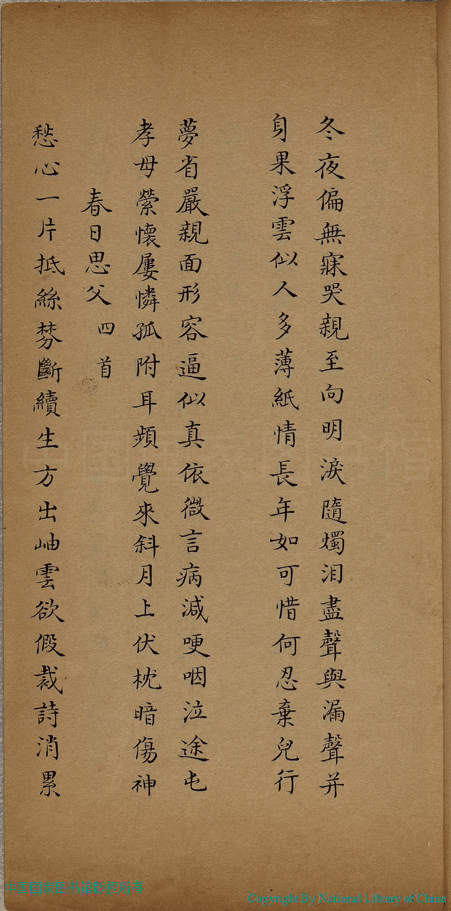 冬夜偏無寐哭親至向明淚隨燭泪盡聲與漏聲并
身果浮雲似人多薄紙情長年如可惜何忍棄兒行
夢省嚴親面形容逼似真依微言病減哽咽泣途屯
孝母縈懷屢憐孤附耳頻覺來斜月上伏枕暗傷神
春日思父 四首
愁心一片抵絲棼斷續生方出岫雲欲假裁詩消累
Copyright By National Library of China